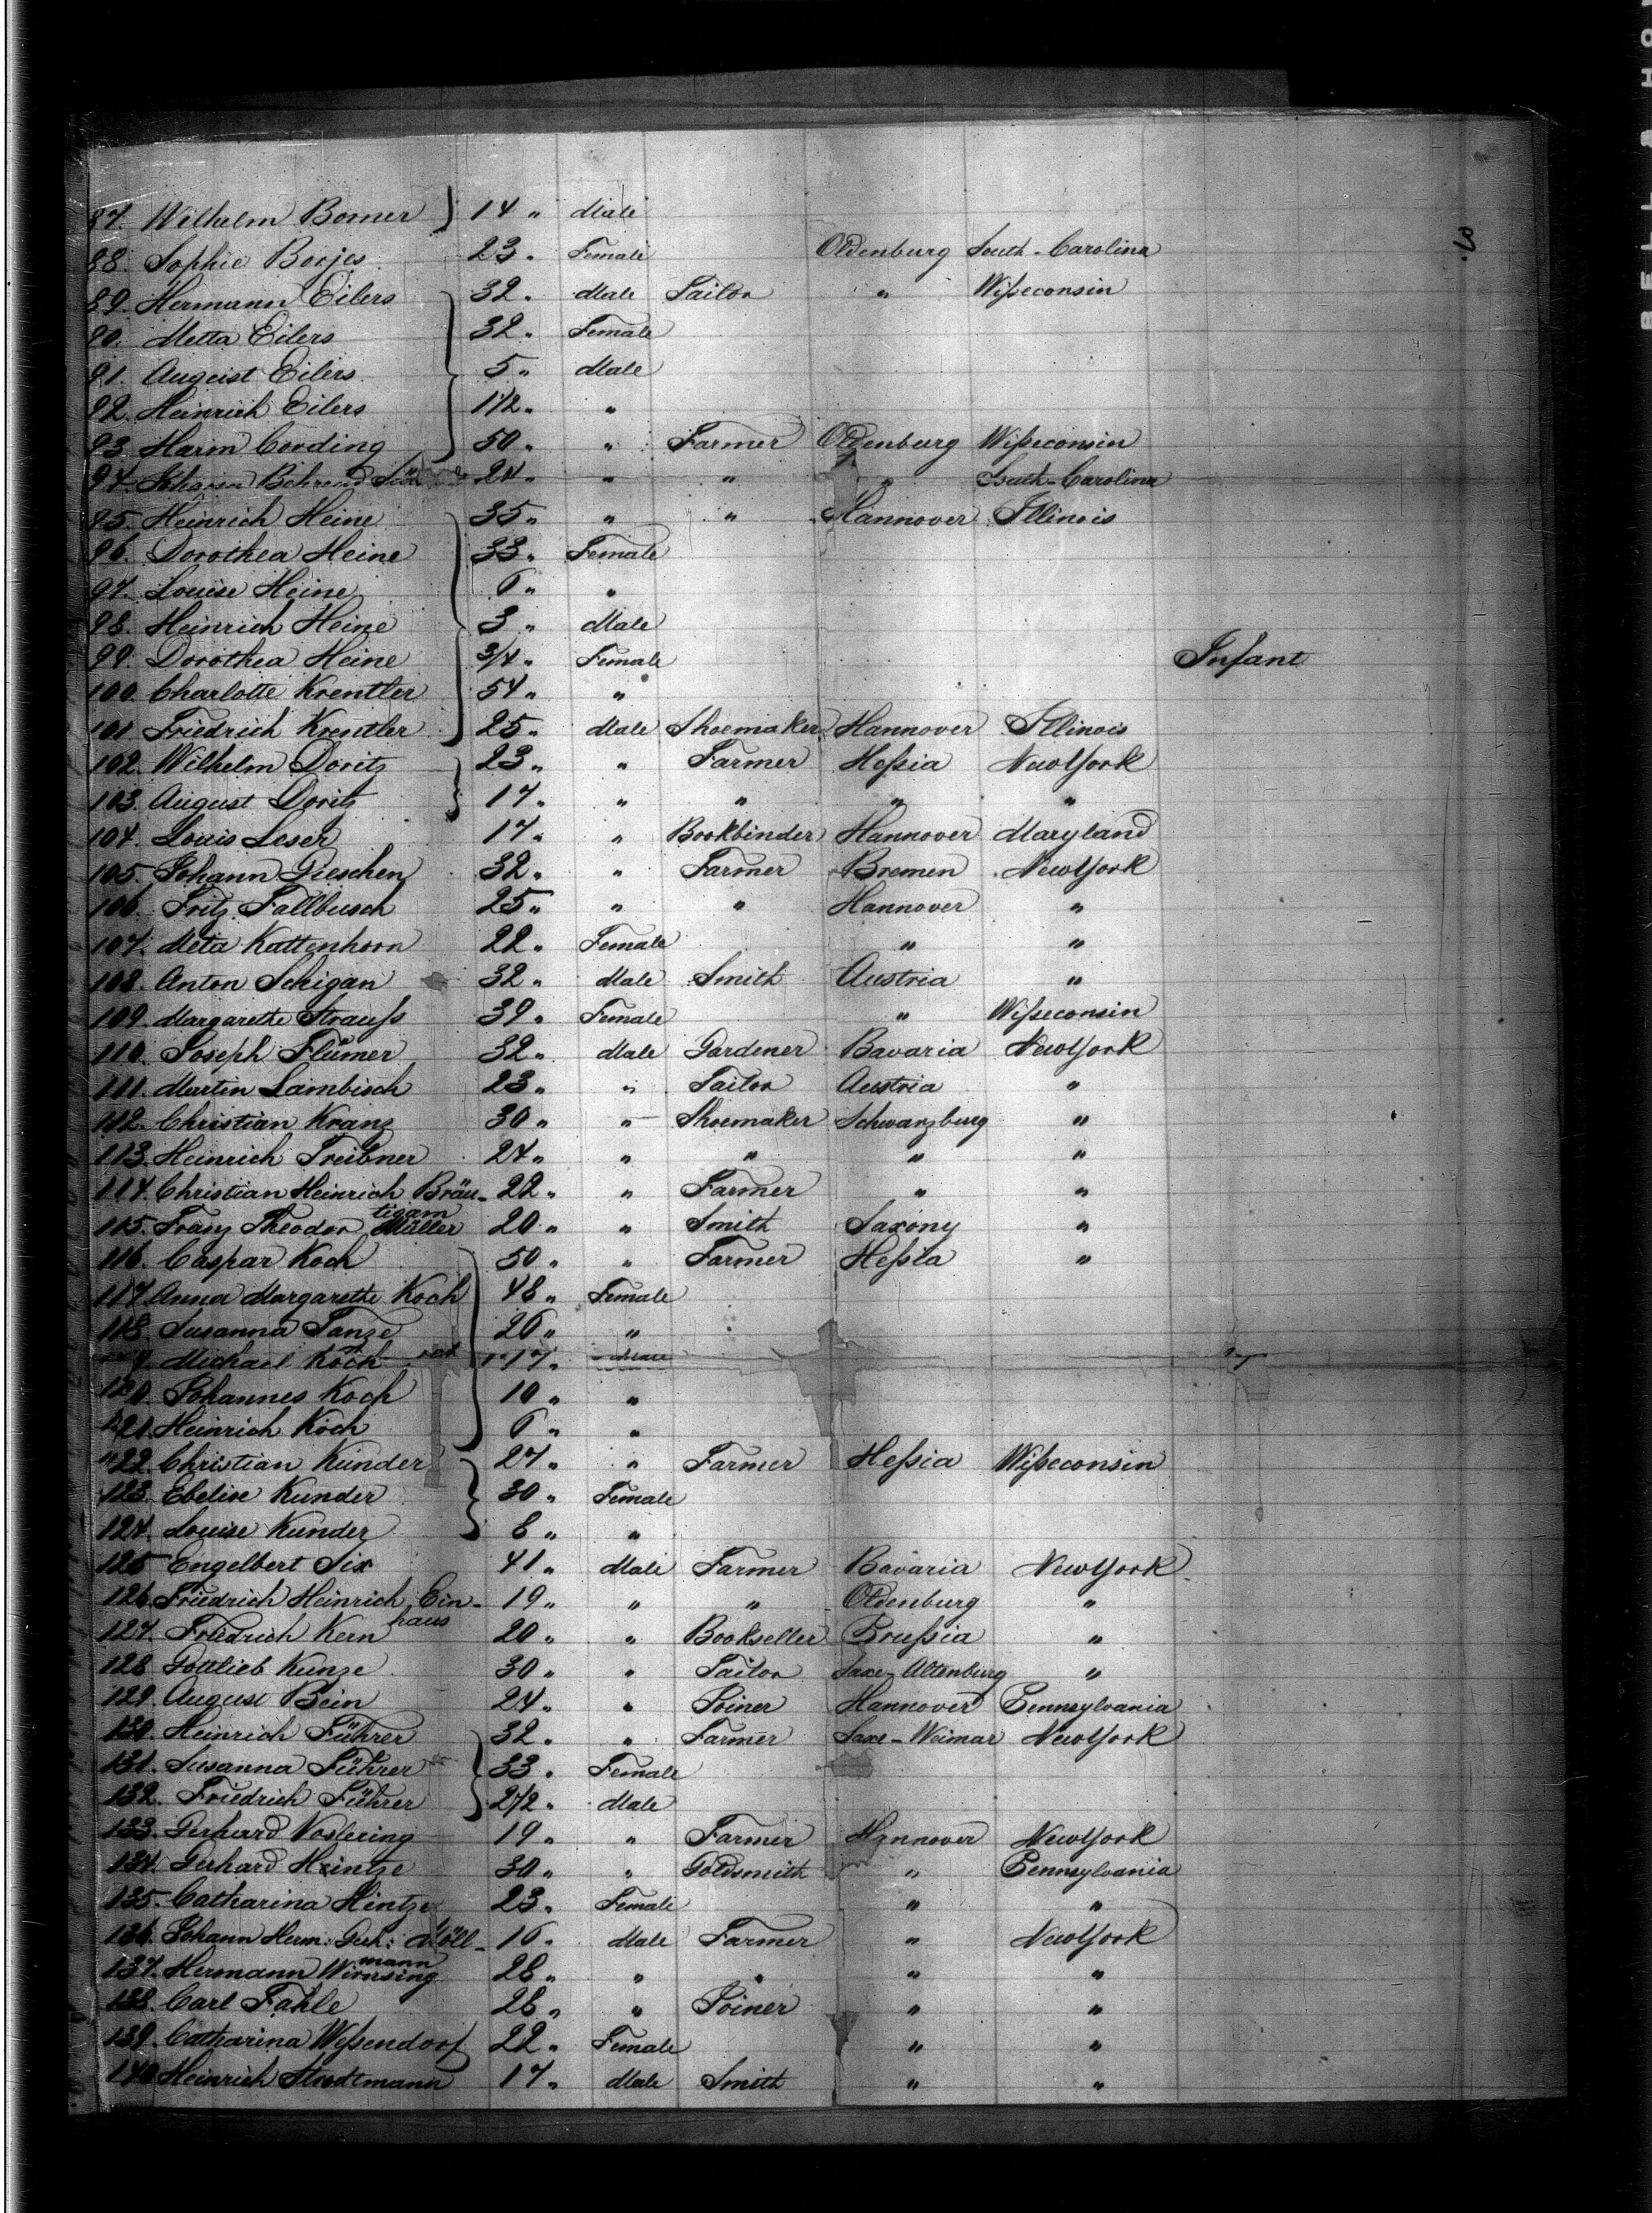 87. Wilhelm Bomer } 14 " Male
88. Sophie Borjes 23 " Female Oldenburg South-Carolina
89. Hermann Eilers 32 " Male Tailor " Wißeconsin
90. Metta Eilers 32 " Female
91. August Eilers 5 " Male
92. Heinrich Eilers 1 1/2 " "
93. Harm Cording 50 " " Farmer Oldenburg Wißeconsin
94. Johann Behrend 24 " " " " South-Carolina
95. Heinrich Heine 35 " " " Hannover Illinois
96. Dorothea Heine 33 " Female
97. Louise Heine 6 " "
98. Heinrich Heine 3 " Male
99. Dorothea Heine 3/4 " Female Infant
100. Charlotte Krentler 54 " "
101. Friedrich Krentler 25 " Male Shoemaker Hannover Illinois
102. Wilhelm Doritz 23 " " Farmer Heßia NewYork
103. August Doritz 17 " " " " "
104. Louis Leser 17 " " Bookbinder Hannover Maryland
105. Johann Gieschen 32 " " Farmer Bremen NewYork
106. Fritz Fallbusch 25 " " " Hannover "
107. Meta Kattenhorn 22 " Female " "
108. Anton Schigan 32 " Male Smith Austria "
109. Margarethe Strauß 39 " Female " Wißeconsin
110. Joseph Flümer 32 " Male Gardener Bavaria NewYork
111. Martin Lambisch 23 " " Tailor Austria "
112. Christian Kranz 30 " " Shoemaker Schwarzburg "
113. Heinrich Treibner 24 " " " " "
114. Christian Heinrich Bräu- 22 " " Farmer " "
tigam
115. Franz Theodor Müller 20 " " Smith Saxony "
116. Caspar Koch 50 " " Farmer Heßia "
117. Anna Margarethe Koch 48 " Female
118. Susanna Tanze 26 " "
Michael Koch 17 " Male
120. Johannes Koch 10 " "
121. Heinrich Koch 6 " "
122. Christian Kunder 27 " " Farmer Heßia Wißeconsin
123. Ebelise Kunder 30 " Female
124. Louise Kunder 8 " "
125 Engelbert Six 41 " Male Farmer Bavaria NewYork
126. Friedrich Heinrich Ein- 19 " " " Oldenburg "
haus
127. Friedrich Kern 20 " " Bookseller Prußia "
128 Gottlieb Kunze 30 " " Tailor Saxe-Altenburg "
129. August Bein 24 " " Joiner Hannover Pennsylvania
130. Heinrich Führer 32 " " Farmer Saxe-Weimar NewYork
131. Susanna Führer 33 " Female
132. Friedrich Führer 2 1/2 " Male
133. Gerhard Voslering 19 " " Farmer Hannover NewYork
134. Gerhard Heintze 30 " " Goldsmith " Pennsylvania
135. Catharina Hintze 23 " Female " "
136. Johann Herm: Gerh: Möll- 16 " Male Farmer " NewYork
mann
137. Hermann Wirnsing 28 " " " " "
138. Carl Fahle 28 " " Joiner " "
139. Catharina Weßendorf 22 " Female " "
140 Heinrich Stradtmann 17 " Male Smith " "